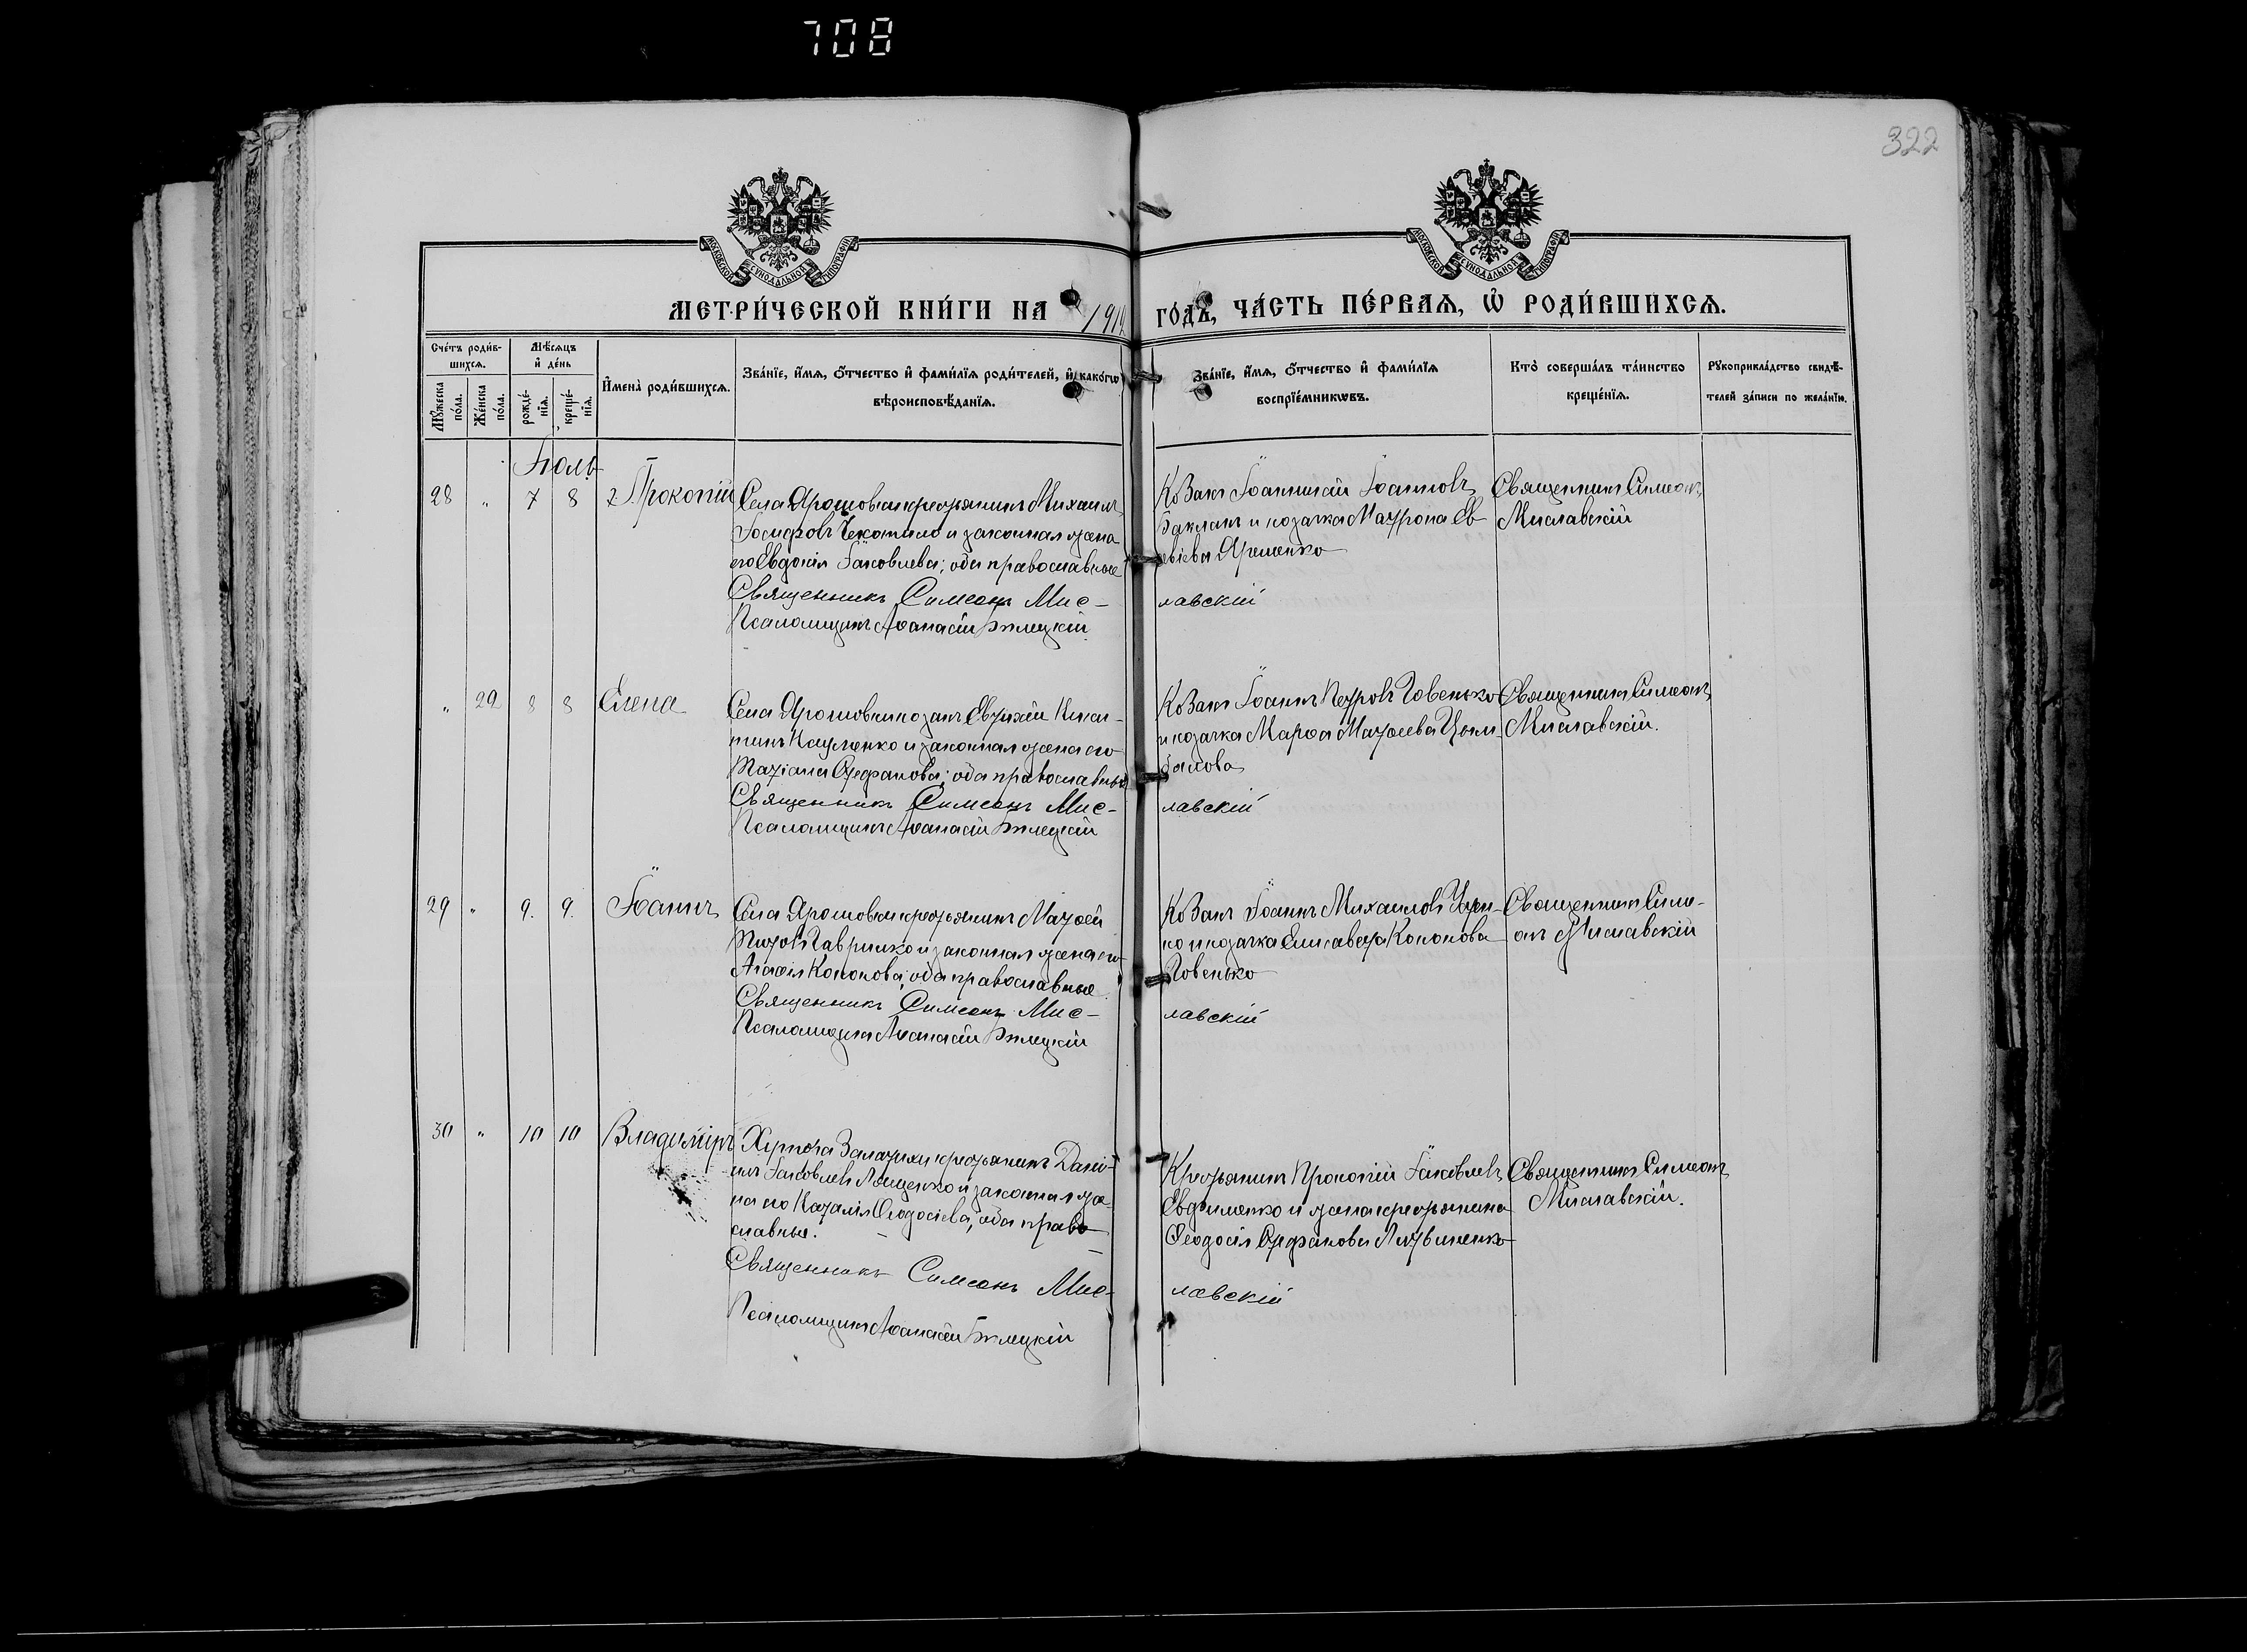 708
322
МОСКОВСКОЙ СѴНОДАЛЬНОЙ ТИПОГРАФІИ
МОСКОВСКОЙ СѴНОДАЛЬНОЙ ТИПОГРАФІИ
МЕТРИ́ЧЕСКОЙ КНИ́ГИ НА 1914 ГО́ДЪ, ЧА́СТЬ ПЕ́РВАЯ, Ѡ҆ РОДИ́ВШИХСЯ.
Сче́тъ роди́вшихся.
Мꙋ́жеска по́ла.
Же́нска по́ла.
Мѣ́сяцъ и҆ де́нь
рожде́нїя.
креще́нїя.
И҆мена̀ роди́вшихся.
Зва́нїе, и҆́мя, ѻ҆́тчество и҆ фами́лїя роди́телей, и҆ како́гѡ
вѣроисповѣ́данїя.
Зва́нїе, и҆́мя, ѻ҆́тчество и҆ фами́лїя
воспрїе́мникѡвъ.
Кто̀ соверша́лъ та́инство
креще́нїя.
Рꙋкоприкла́дство свидѣ́-
телей за́писи по жела́нїю.
Іюль
28 " 7 8 Прокопій
Села Ярошовки крестьянинъ Михаилъ
Іосифовъ Чекотило и законная жена
его Евдокія Іаковлева; оба православные
Священникъ Симеонъ Мис-
лавскій
Псаломщикъ Аѳанасій Бѣлецкій
Козакъ Іоанникій Іоанновъ
Бакланъ и козачка Матрона Ев-
Яременко
Священникъ Симеонъ
Миславскій
" 22 8 8 Елена
Села Ярошовки козакъ Евтихій
Науменко и законная жена его
Татіана Стефанова; оба православные
Священникъ Симеонъ Мис-
лавскій
Псаломщикъ Аѳанасій Бѣлецкій
Козакъ Іоаннъ Петровъ Говенько
и козачка Марѳа Матѳеева Цым-
балова
Священникъ Симеонъ
Миславскій.
29 " 9. 9. Іоаннъ
Села Ярошовки крестьянинъ Матѳей
Титовъ Гаврилко и законная жена его
Агаѳія Кононова; оба православные.
Священникъ Симеонъ Мис-
лавскій
Псаломщикъ Аѳанасій Бѣлецкій
Козакъ Іоаннъ Михаиловъ
но и козачка Елисавета Кононова
Говенько
Священникъ Симе-
онъ Миславскій
30 " 10 10 Владиміръ
Хутора крестьянинъ Дані-
илъ Іаковлевъ Лященко и законная же-
на его Наталія Ѳеодосіева; оба право-
славные.
Священникъ Симеонъ Мис-
лавскій
Псаломщикъ Аѳанасій Бѣлецкій
Крестьянинъ Прокопій Іаковлевъ
Евфименко и жена крестьянина
Ѳеодосія Стефанова Литвиненко
Священникъ Симеонъ
Миславскій.